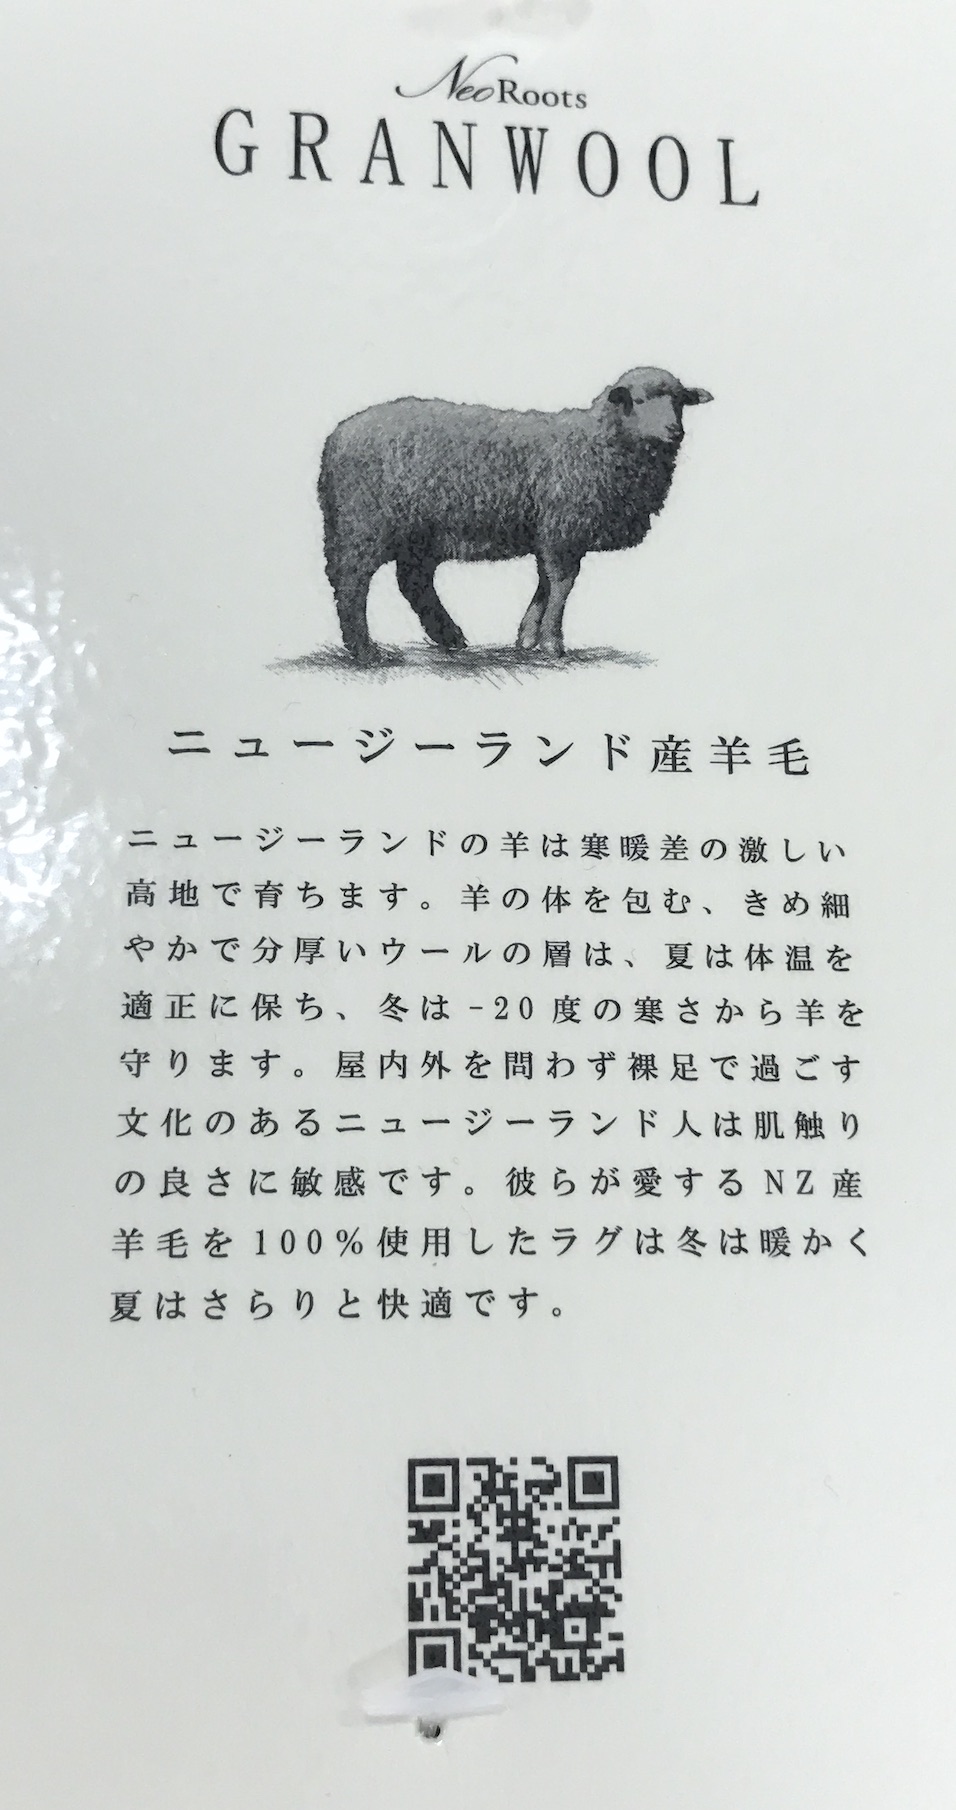 NeoRoots
GRANWOOL
ニュージーランド産羊毛
ニュージーランドの羊は寒暖差の激しい
高地で育ちます。羊の体を包む、きめ細
やかで分厚いウールの層は、夏は体温を
適正に保ち、冬は-20度の寒さから羊を
守ります。屋内外を問わず裸足で過ごす
文化のあるニュージーランド人は肌触り
の良さに敏感です。彼らが愛するNZ産
羊毛を100%使用したラグは冬は暖かく
夏はさらりと快適です。